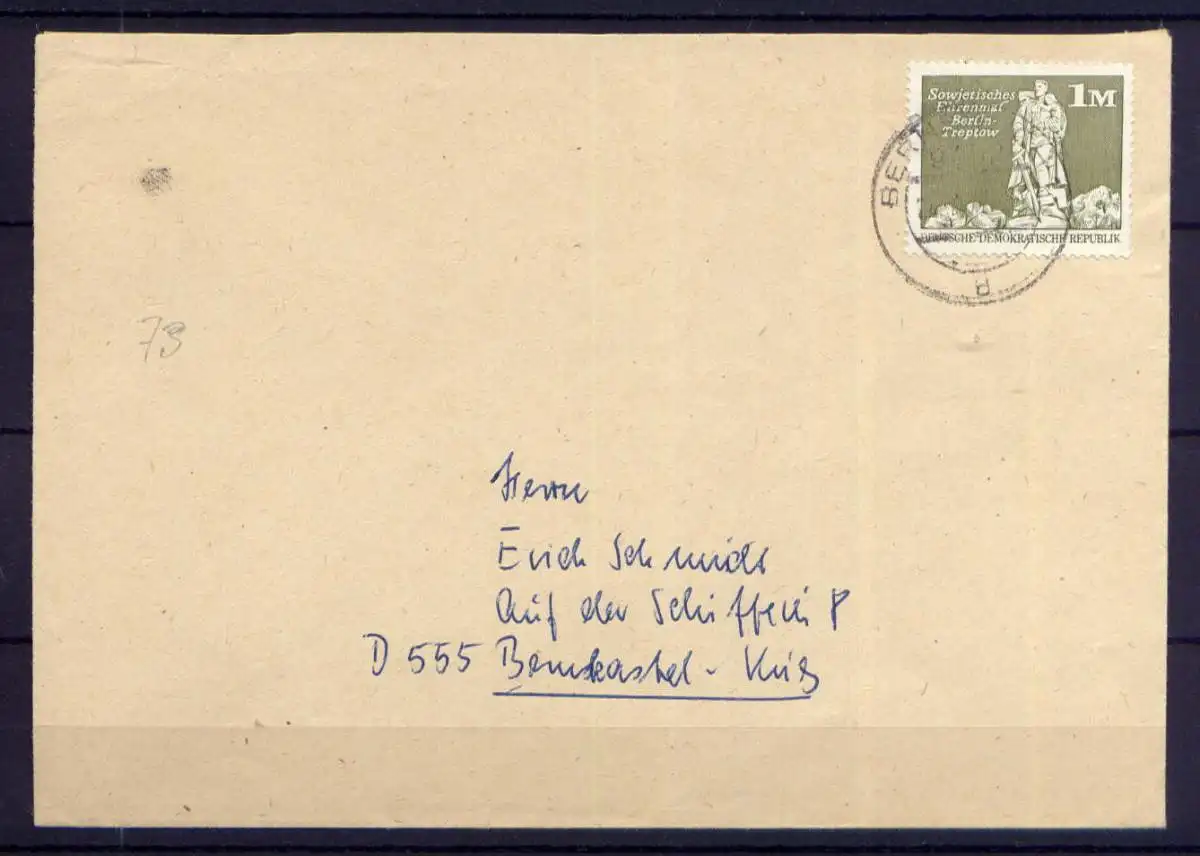 Sowjetisches
Ehrenmal
Berlin-
Treptow
1M
DEUTSCHE DEMOKRATISCHE REPUBLIK
BER
73
Herrn
Erich Schmidt
Auf der
D 555 Bernkastel-Kues